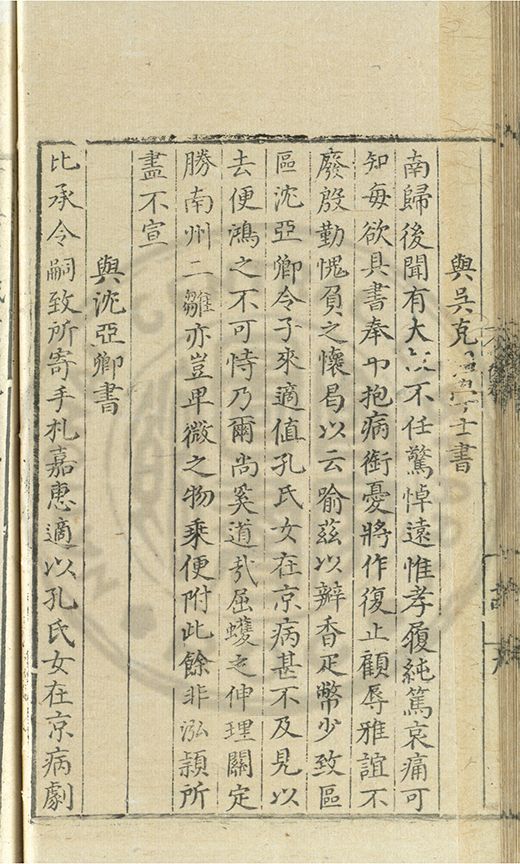 與吳克 學士書
南歸後聞有大 不任驚悼遠惟孝履純篤哀痛可
知每欲具書奉 抱病銜憂將作復止顧辱雅誼不
廢殷勤愧負之懷曷以云喻茲以辦香疋幣少致區
區沈亞卿令子來適值孔氏女在京病甚不及見以
去便鴻之不可恃乃爾尚奚道哉屈蠖之伸理關定
勝南州二雛亦豈卑微之物乘便附此餘非泓穎所
盡不宣
與沈亞卿書
比承令嗣致所寄手札嘉惠適以孔氏女在京病劇